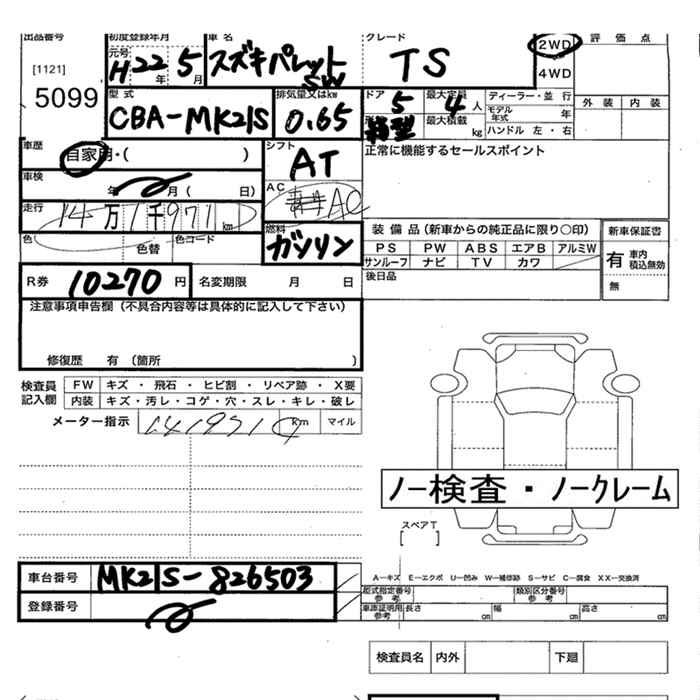 出品番号 初度登録年月 車名 グレード 2WD 評価点
[1121] 元号 H22年 5月 スズキパレット SW TS 4WD
5099 型式 排気量又はkw ドア 5 最大定員 4人 ディーラー・並行 外装 内装
CBA-MK21S 0.65 形状 箱型 最大積載 kg モデル年式 年
ハンドル 左・右
車歴 自家用・( ) シフト AT 正常に機能するセールスポイント
車検 年 月( 日) AC AAC
走行 14万1千971km
色 色替 色コード 燃料 ガソリン 装備品(新車からの純正品に限り○印) 新車保証書
PS PW ABS エアB アルミW 有 車内積込無効
サンルーフ ナビ TV カワ
R券 10270円 名変期限 月 日 後日品 無
注意事項申告欄(不具合内容等は具体的に記入して下さい)
修復歴 有(箇所 )
検査員記入欄 FW キズ・飛石・ヒビ割・リペア跡・X要
内装 キズ・汚レ・コゲ・穴・スレ・キレ・破レ
メーター指示 141971 km マイル
ノー検査・ノークレーム
スペアT
[ ]
車台番号 MK21S-826503 A―キズ E―エクボ U―凹み W―補修跡 S―サビ C―腐食 XX―交換済
型式指定番号 参考 類別区分番号 参考
登録番号 車庫証明用参考 長さ cm 幅 cm 高さ cm
検査員名 内外 下廻